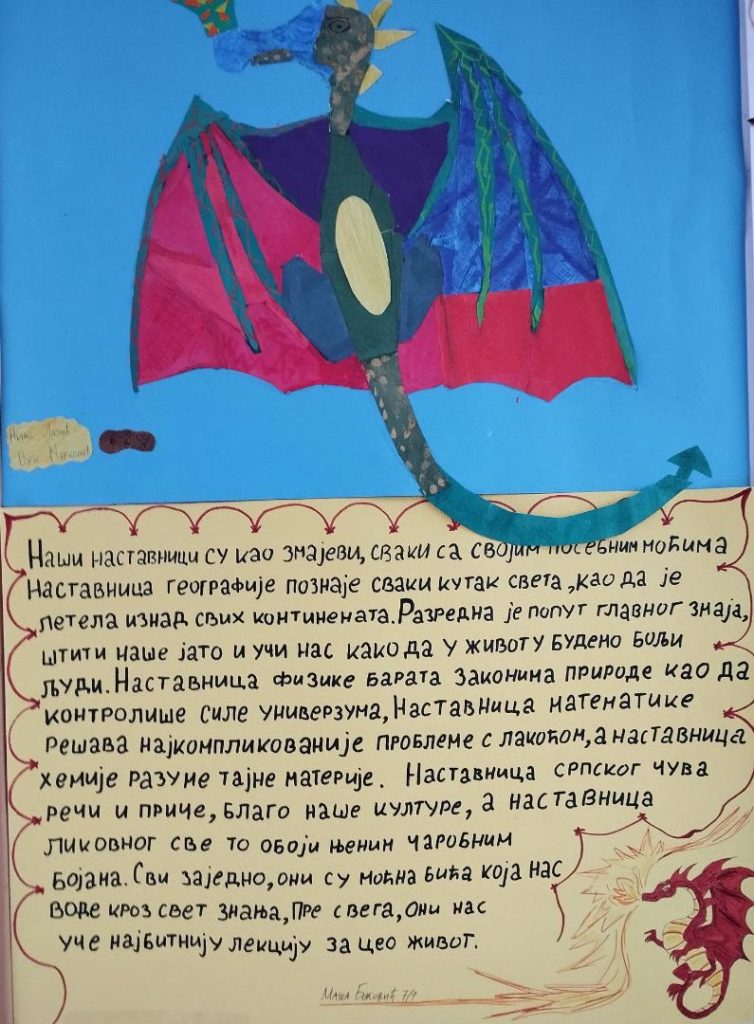 Наши наставници су као змајеви, сваки са својим посебним моћима
Наставница географије познаје сваки кутак света, као да је
летела изнад свих континената. Разредна је попут главног змаја,
штити наше јато и учи нас како да у животу будемо бољи
људи. Наставница физике барата законима природе као да
контролише силе универзума, Наставница математике
решава најкомпликованије проблеме с лакоћом, а наставница
хемије разуме тајне материје. Наставница српског чува
речи и приче, благо наше културе, а наставница
ликовног све то обоји њеним чаробним
бојама. Сви заједно, они су моћна бића која нас
воде кроз свет знања, Пре свега, они нас
уче најбитнију лекцију за цео живот.
Маша 7/1